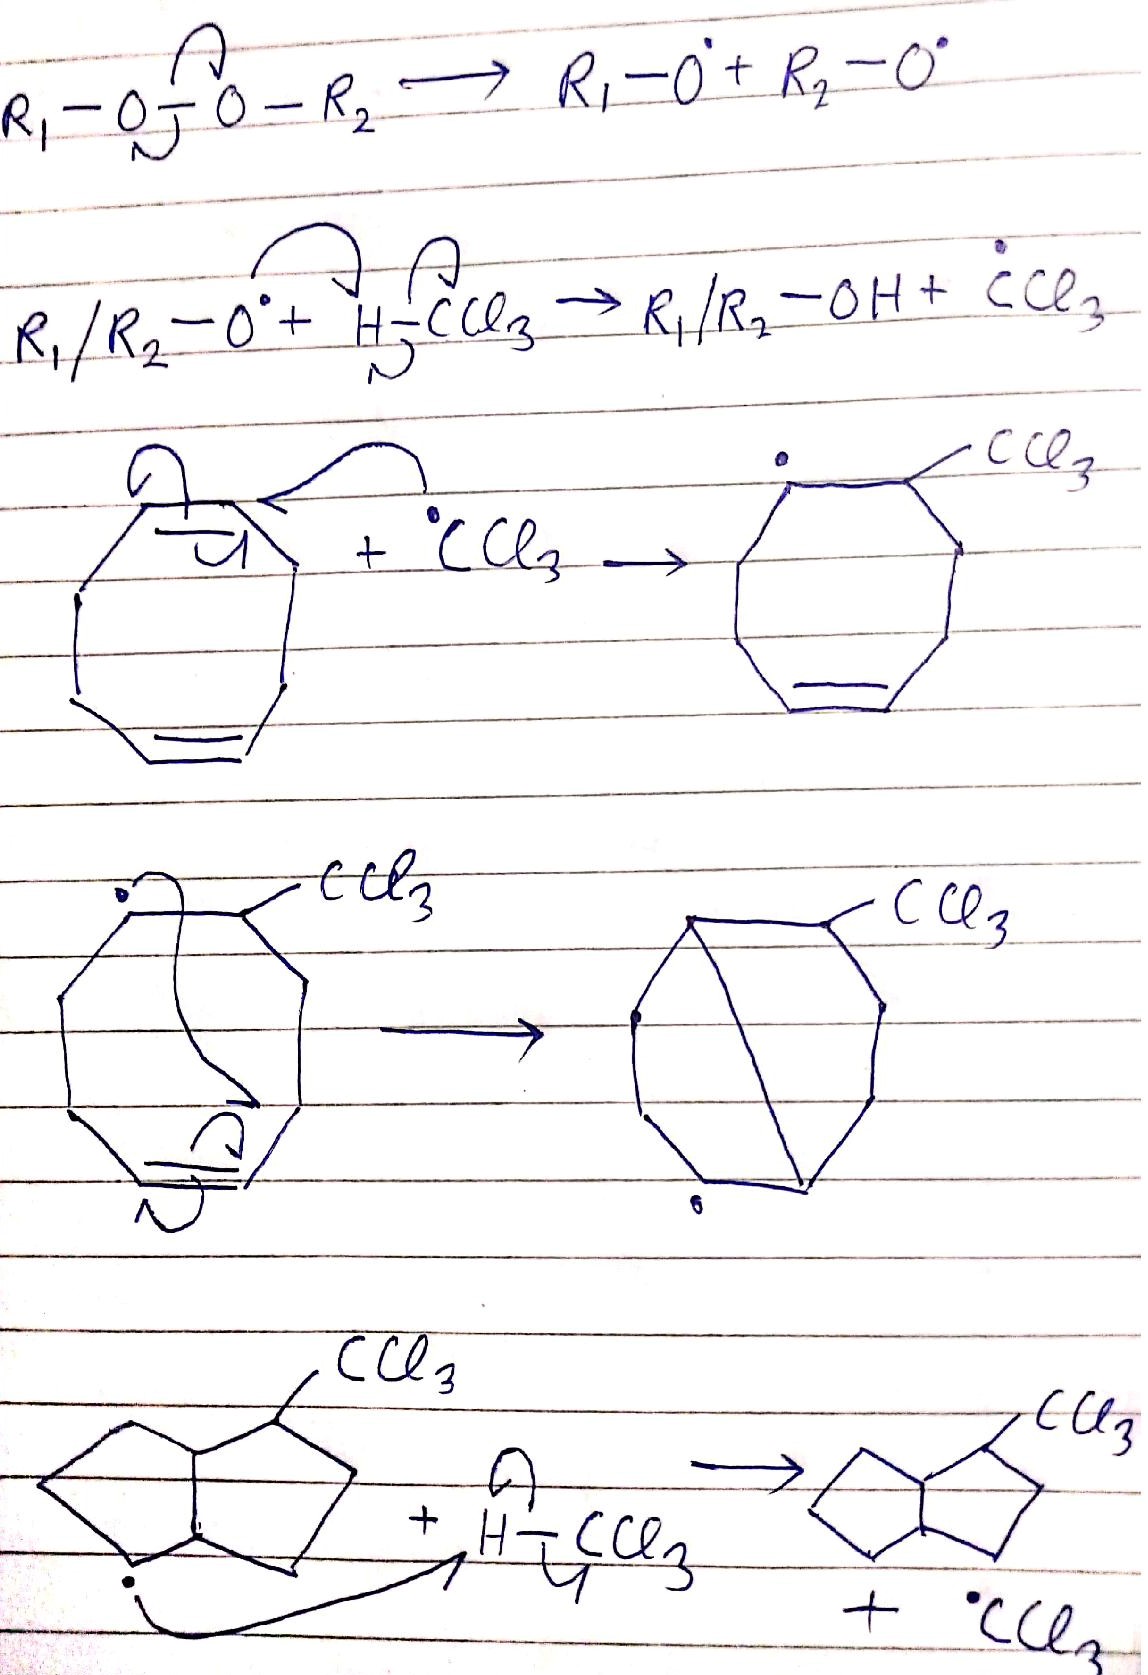 R₁ – O – O – R₂ → R₁ – O• + R₂ – O•
R₁/R₂ – O• + H – CCl₃ → R₁/R₂ – OH + •CCl₃
+ •CCl₃ → • CCl₃
• CCl₃ → CCl₃ •
CCl₃ • + H – CCl₃ → CCl₃
+ •CCl₃